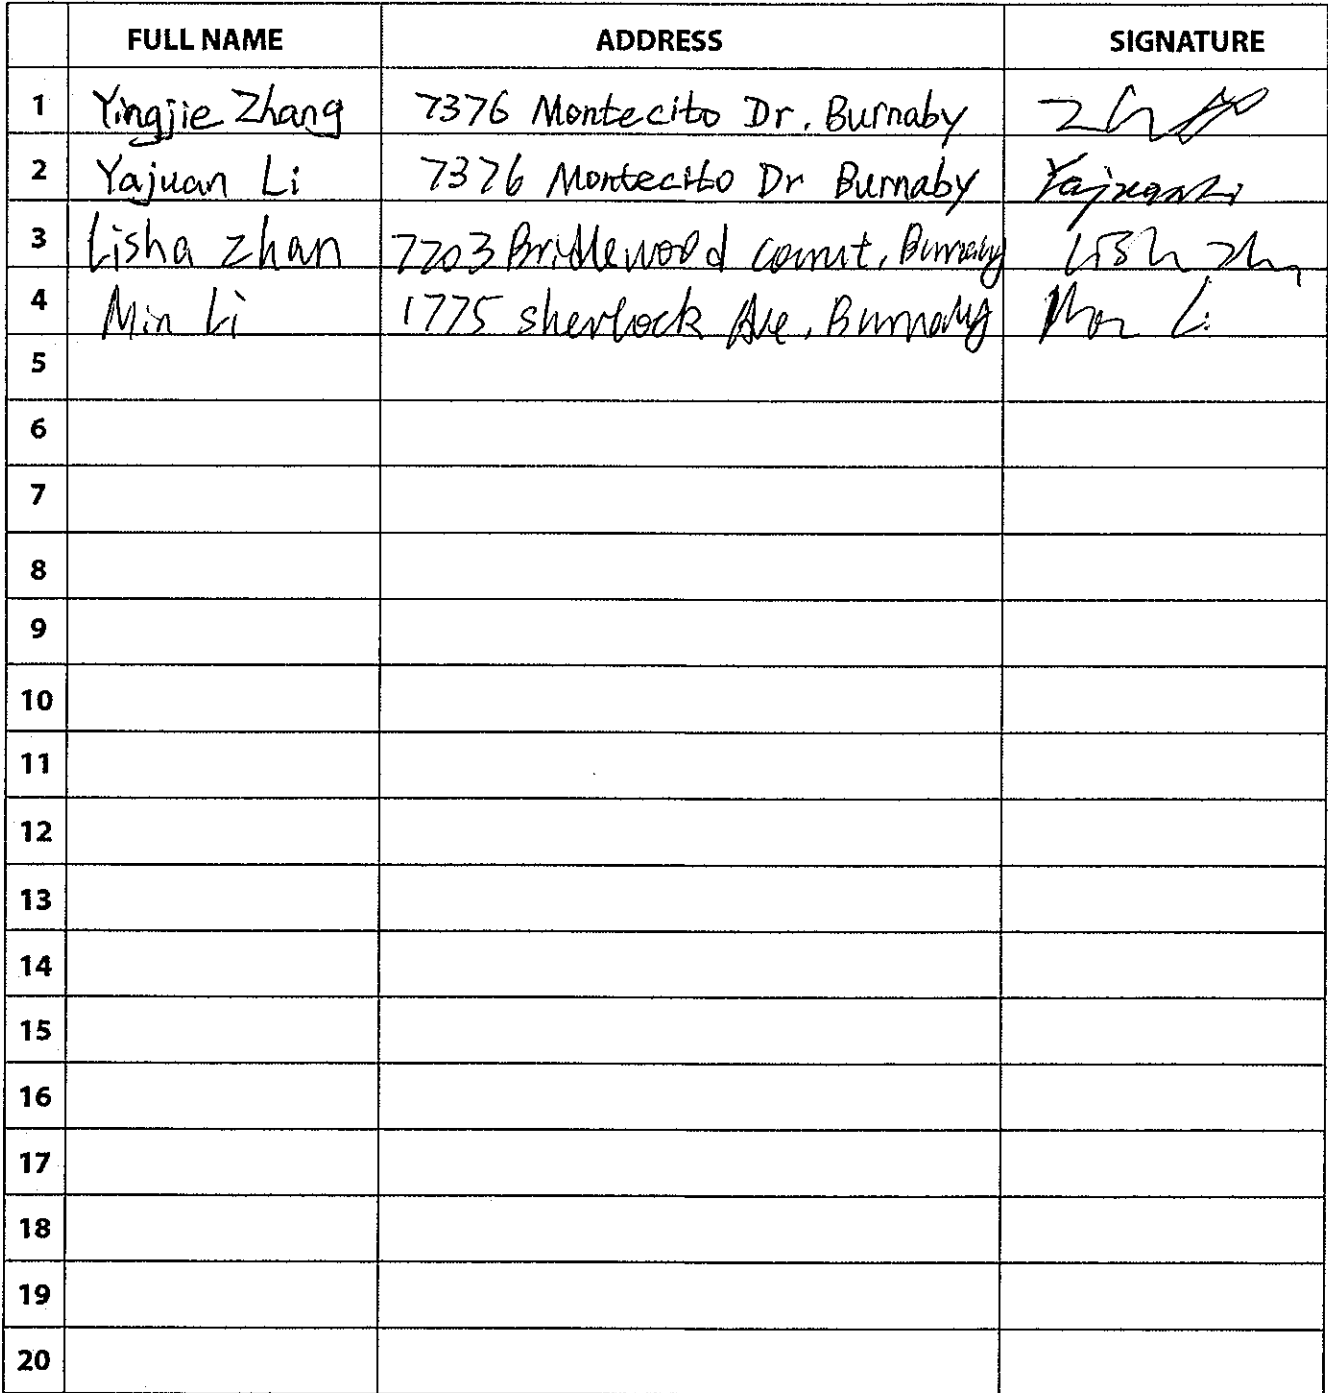 FULL NAME ADDRESS SIGNATURE
1 Yingjie Zhang 7376 Montecito Dr, Burnaby
2 Yajuan Li 7376 Montecito Dr Burnaby Yajuan Li
3 Lisha Zhan 7203 Bridlewood Burnaby
4 Min Li 1775 sherlock Ave, Burnaby Min Li
5
6
7
8
9
10
11
12
13
14
15
16
17
18
19
20